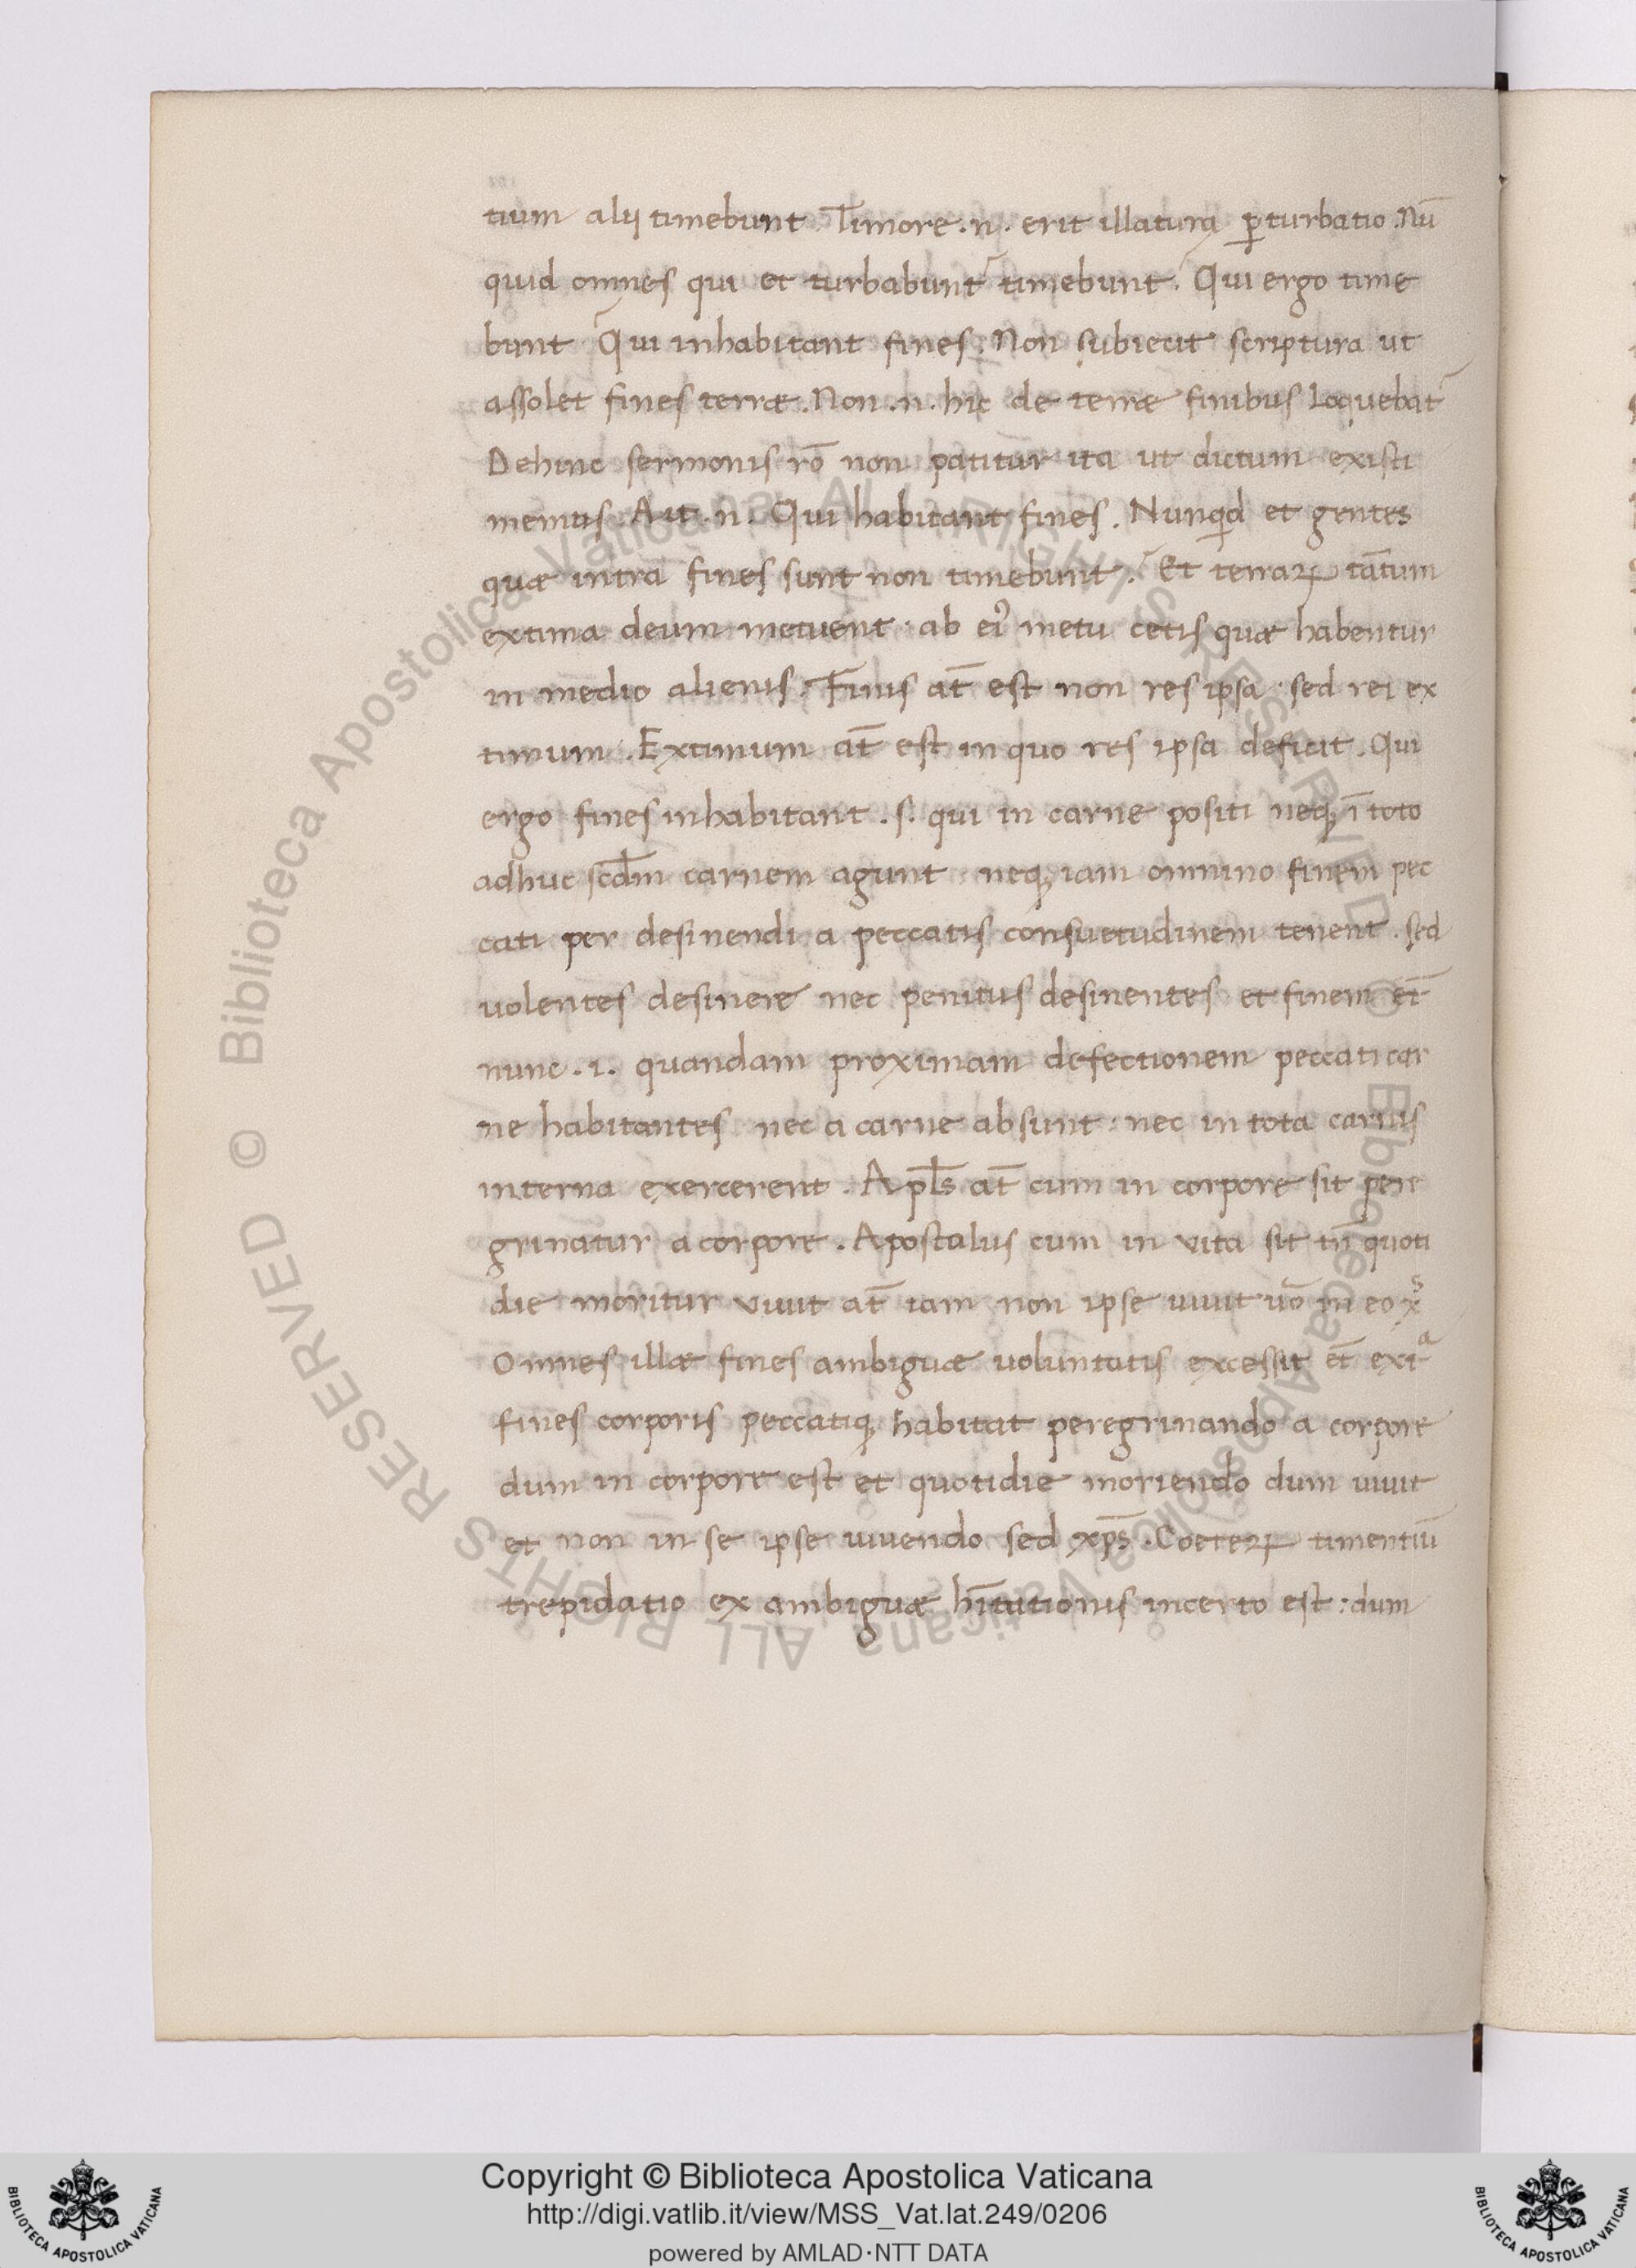 tium alij timebunt. Timore .n. erit illatura p̱turbatio. Nū
quid omnes qui et turbabunt̄ timebunt. Qui ergo time
bunt Qui inhabitant fines. Non subiecit scriptura ut
assolet fines terræ. Non .n. hic de terræ finibus loquebat̄
Dehinc sermonis rō non patitur ita ut dictum existi
memus. Ait .n. Qui habitant fines. Nunqd et gentes
quæ intra fines sunt non timebunt. Et terraꝝ tātum
extima deum metuent: ab eiꝰ metu cetis quæ habentur
in medio alienis. Finis at̄ est non res ipsa: sed rei ex
timum. Extimum at̄ est in quo res ipsa deficit. Qui
ergo fines inhabitant .s. qui in carne positi neqꝫ ī toto
adhuc scd̄m carnem agunt neqꝫ iam omnino finem pec
cati per desinendi a peccatis consuetudinem tenent. sed
uolentes desinere nec penitus desinentes et finem et̄
nunc .i. quandam proximam defectionem peccati car
ne habitantes nec a carne absunt: nec in tota carnis
interna exercerent. Apl̄s at̄ cum in corpore sit pere
grinatur a corpore. Apostalus cum in vita sit tn̄ quoti
die moritur vivit at̄ iam non ipse uiuit uō in eo xˢ
Omnes illæ fines ambiguæ uoluntatis excessit et̄ extᵃ
fines corporis peccatiqꝫ habitat peregrinando a corpore
dum in corpore est et quotidie moriendo dum uiuit
et non in se ipse uiuendo sed xp̄s. Coeteꝝ timentiū
trepidatio ex ambiguæ hītationis incerto est: dum
Copyright © Biblioteca Apostolica Vaticana
http://digi.vatlib.it/view/MSS_Vat.lat.249/0206
powered by AMLAD·NTT DATA
BIBLIOTECA APOSTOLICA VATICANA
BIBLIOTECA APOSTOLICA VATICANA
© Biblioteca Apostolica Vaticana ALL RIGHTS RESERVED © Biblioteca Apostolica Vaticana ALL RIGHTS RESERVED